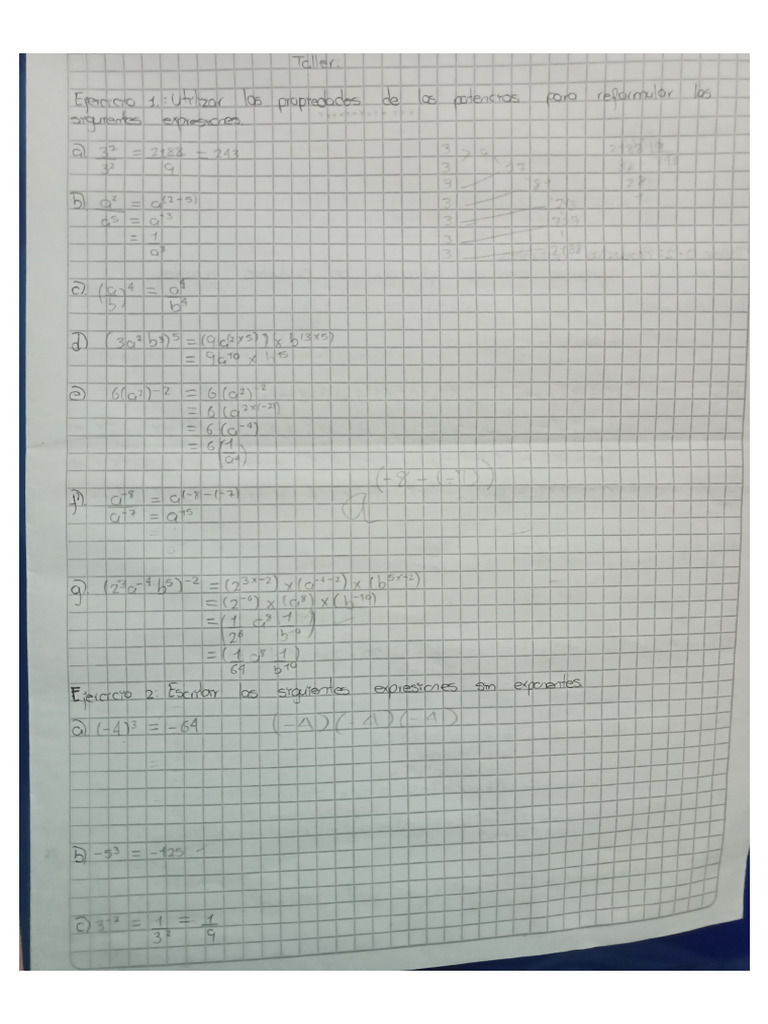 Taller.
Ejercicio 1.: Utilizar las propiedades de las potencias para reformular las
siguientes expresiones.
a) 3^7/3^2 = 2188/9 = 243
b) a^2/a^5 = a^(2-5)
= a^-3
= 1/a^3
c) (a/b)^4 = a^4/b^4
d) (3a^2 b^3)^5 = (9a^(2×5)) × b^(3×5)
= 9a^10 × b^15
e) 6(a^2)^-2 = 6(a^2)^-2
= 6(a^2×(-2))
= 6(a^-4)
= 6(1/a^4)
(-8-(-7))
a
f) a^-8/a^-7 = a^(-8-(-7)
= a^-5
g) (2^3 a^-4 b^5)^-2 = (2^3×-2) × (a^-4-2) × (b^5×-2)
= (2^-6) × (a^8) × (b^-10)
= (1/2^6 a^8 1/b^10)
= (1/64 a^8 1/b^10)
Ejercicio 2: Escribir las siguientes expresiones sin exponentes
a) (-4)^3 = -64 (-4)(-4)(-4)
b) -5^3 = -125
c) 3^-2 = 1/3^2 = 1/9